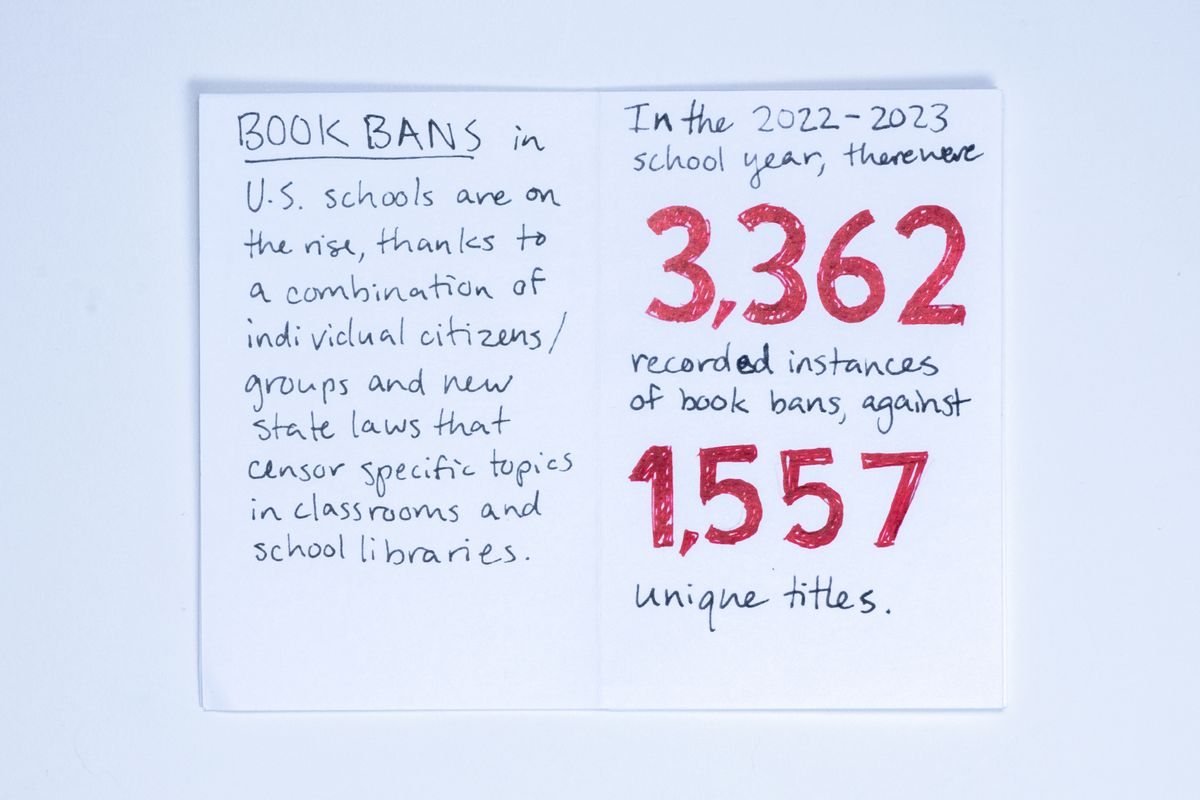 BOOK BANS in
U.S. schools are on
the rise, thanks to
a combination of
individual citizens/
groups and new
state laws that
censor specific topics
in classrooms and
school libraries.
In the 2022-2023
school year, there were
3,362
recorded instances
of book bans, against
1,557
unique titles.